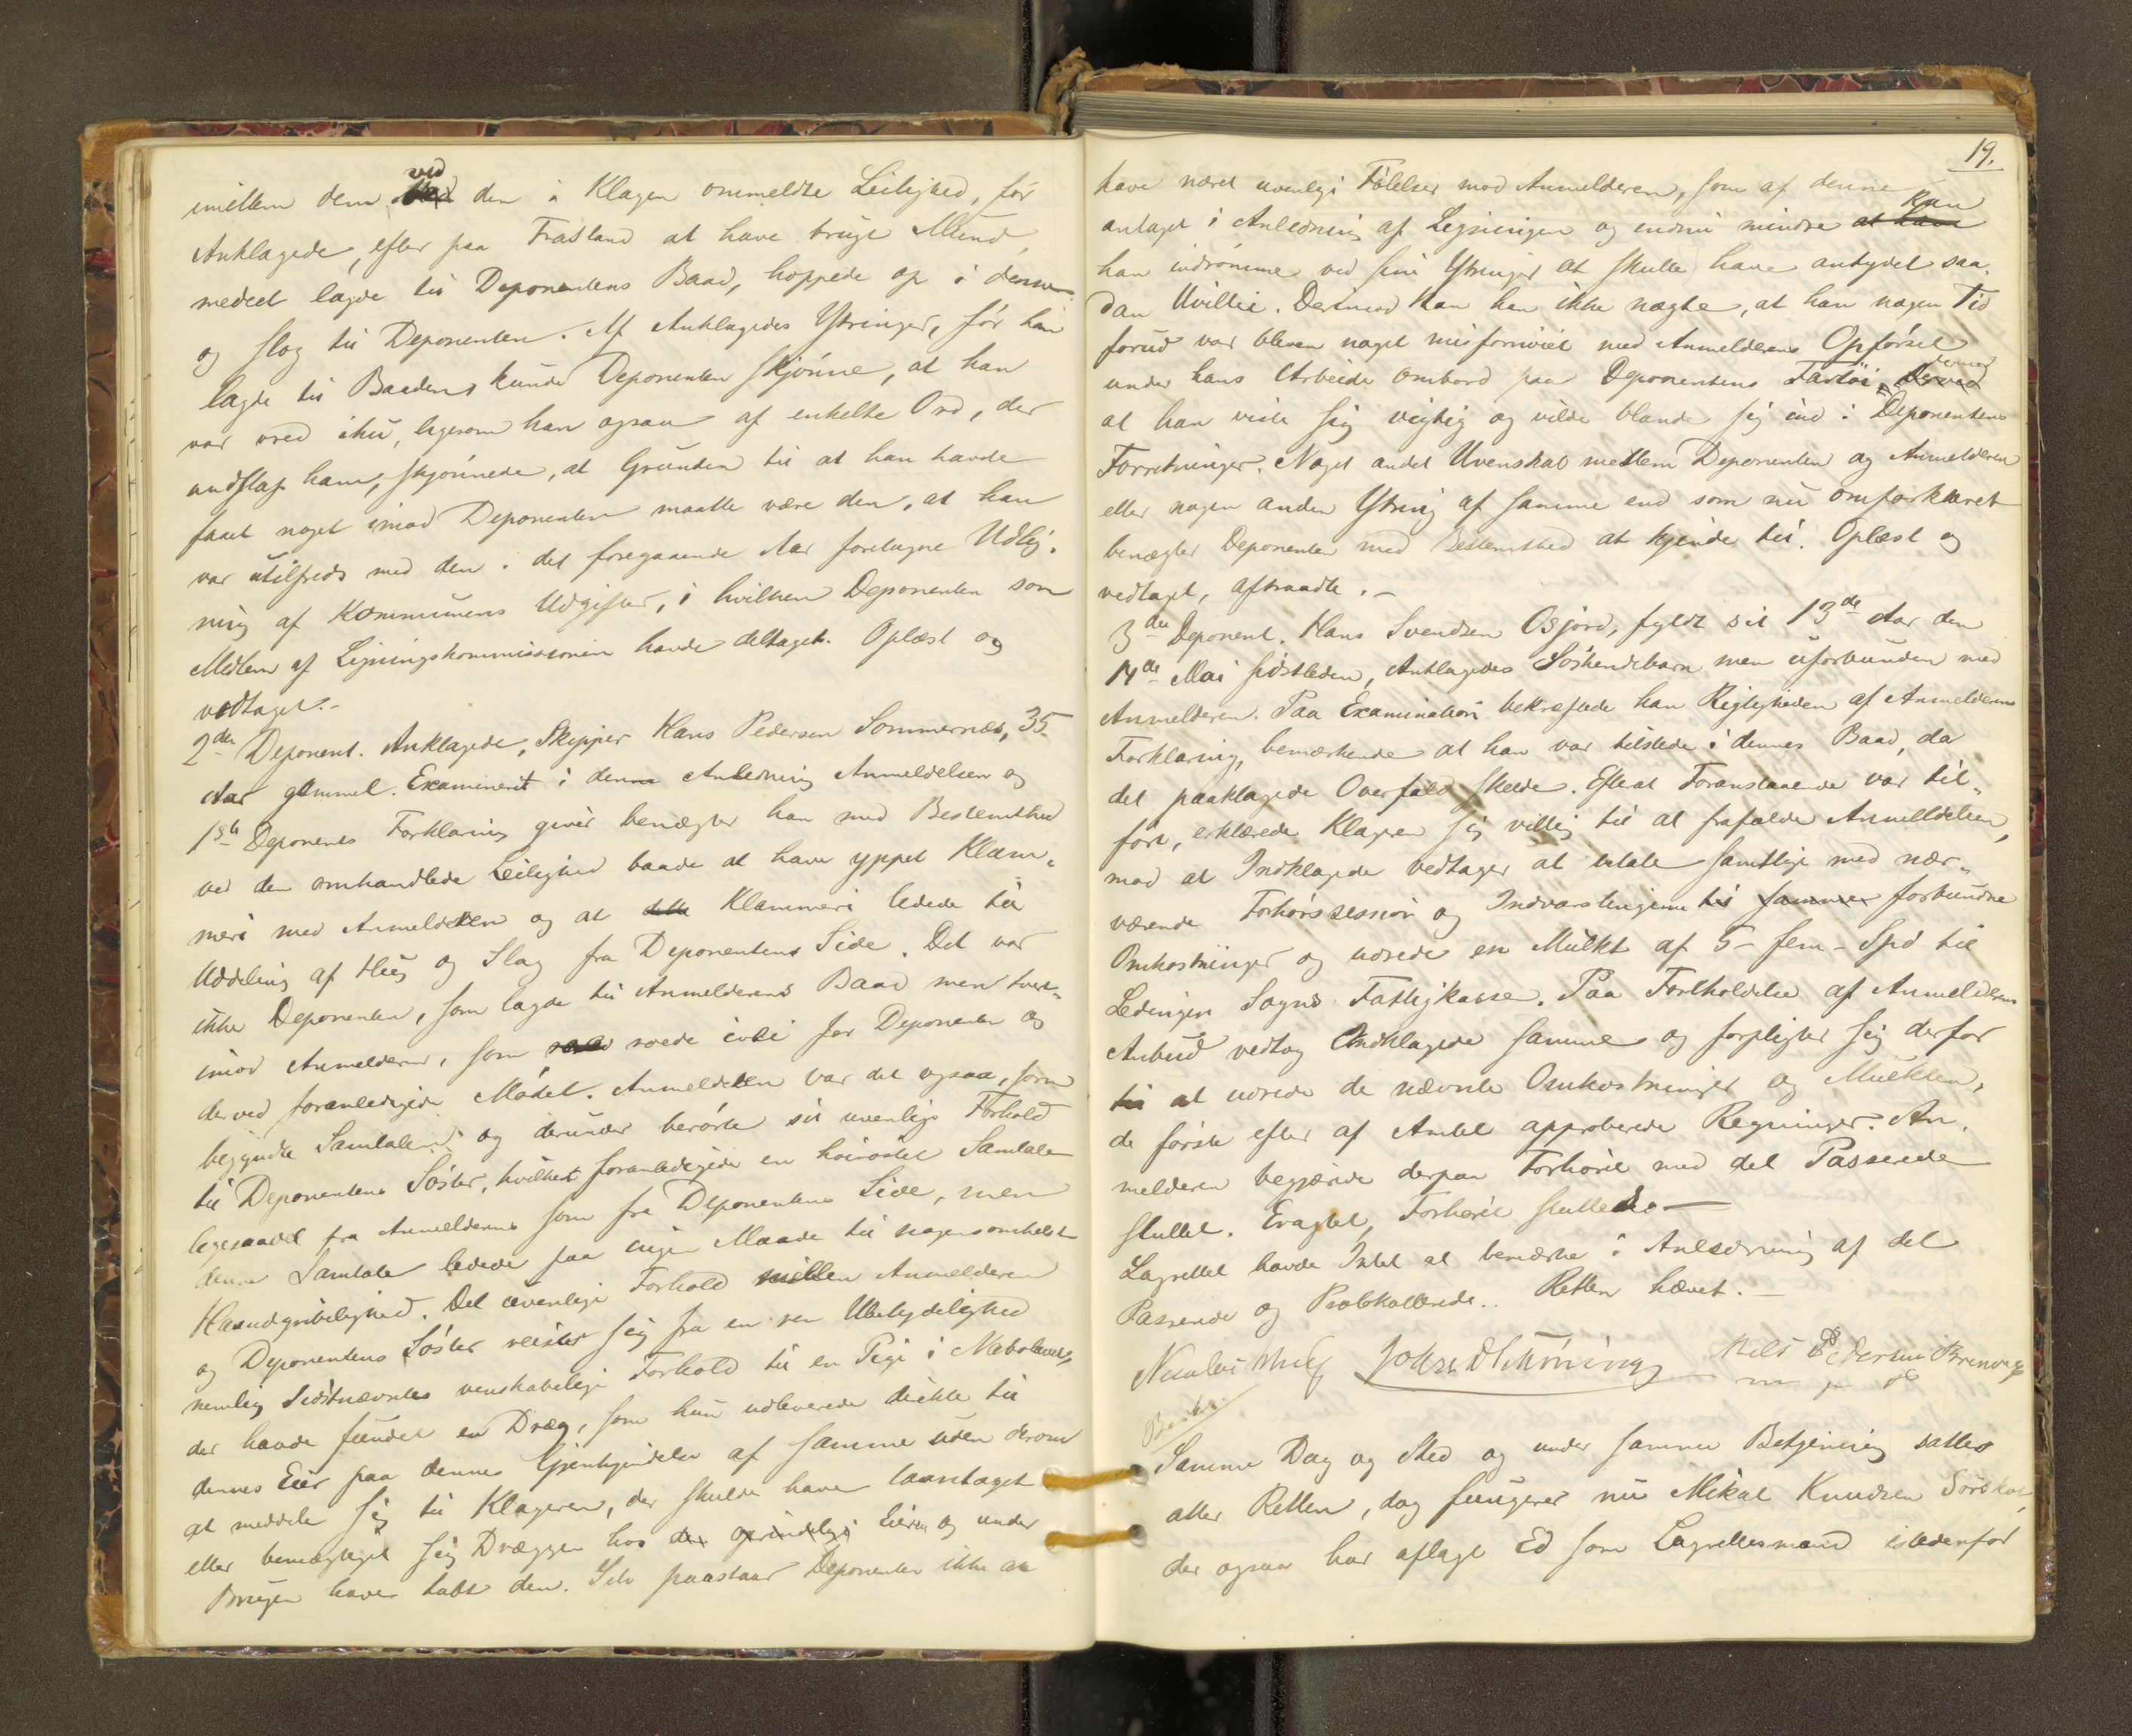 imellem dem ved den i Klagen ommeldte Leilighed, før
Anklagede, efter paa Frastand at have brugt Mund,
medeet lagde til Deponentens Baad, hoppede op i denne
og slog til Deponenten. Af Anklagedes Ytringer, før han
lagde til Baaden, kunde Deponenten skjønne, at han
var vred ihu, ligesom han ogsaa af enkelte Ord, der
undslap ham, skjønnede, at Grunden til at han havde
faaet noget imod Deponenten maatte være den, at han
var utilfreds med den i det foregaaende Aar foretagne Udlig-
ning af Kommunens Udgifter, i hvilken Deponenten som
Medlem af Ligningskommissionen havde deltaget. Oplæst og
vedtaget.-
2den Deponent. Anklagede, Skipper Hans Pedersen Sommernæs, 35
Aar gammel. Examineret i denne Anledning Anmeldelsen og
1ste Deponents Forklaring giver benægter han med Bestemthed
ved den omhandlede Leilighed baade at have yppet Klam-
meri med Anmelderen og at dette Klammeri ledede til
Uddeling af Hug og Slag fra Deponentens Side. Det var
ikke Deponenten, som lagde til Anmelderens Baad men tvert-
imod Anmelderen, som roede ivei for Deponenten og
derved foranledigede Mødet. Anmelderen var det ogsaa, som
begyndte Samtalen og derunder berørte sit uvenlige Forhold
til Deponentens Søster, hvilket foranledigede en høirøstet Samtale
ligesaavel fra Anmelderens som fra Deponentens Side, men
denne Samtale ledede paa ingen Maade til nogensomhelst
Haandgribelighed. Det uvenlige Forhold mellem Anmelderen
og Deponentens Søster reiste sig fra en ren Ubetydelighed
nemlig Sidstnævntes venskabelige Forhold til en Pige i Nabolauget,
der havde fundet en Dræg, som hun udleverede direkte til
dennes Eier paa dennes Gjenkjendelse af samme uden derom
at meddele sig til Klageren, der skulde have laantaget
eller bemægtiget sig Dræggen hos den oprindelige Eieren og under
Brugen have tabt den. Selv paastaar Deponenten ikke at
19.
have næret uvenlige Følelser mod Anmelderen, som af denne
antaget i Anledning af Ligningen og endnu mindre at have kan
han indrømme ved sine Ytringer at skulle have antydet saa-
dan Uvillie. Derimod kan han ikke nægte, at han nogen Tid
forud var bleven noget misfornøiet med Anmelderens Opførsel
under hans Arbeide ombord paa Deponentens Fartøi, derved
at han viste sig vigtig og vilde blande sig ind i Deponentens
Forretninger. Noget andet Uvenskab mellem Deponenten og Anmelderen
eller nogen anden Ytring af samme end som nu omforklaret
benægter Deponenten med Bestemthed at kjende til. Oplæst og
vedtaget, aftraadte.-
3die Deponent. Hans Svendsen Osjord, fyldt sit 13de Aar den
14de Mai sidstleden, Anklagedes Søskendebarn men uforbunden med
Anmelderen. Paa Examination bekræftede han Rigtigheden af Anmelderens
Forklaring, bemærkende at han var tilstede i dennes Baad, da
det paaklagede Overfald skede. Efterat Foranstaaende var til-
ført, erklærede Klageren sig villig til at frafalde Anmeldelsen,
mod at Indklagede vedtager at betale samtlige med nær-
værende Forhørssession og Indvarslingerne til samme forbundne
Omkostninger og udrede en Mulkt af 5 - fem - Spd til
Ledingen Sogns Fattigkasse. Paa Foreholdelse af Anmelderens
Anbud vedtog Indklagede samme og forpligter sig derfor
til at udrede de nævnte Omkostninger og Mulkten,
de første efter af Amtet approberede Regninger. An-
melderen begjærede derpaa Forhøret med det Passerede
sluttet. Eragtet, Forhøret sluttedes. —
Lagrettet havde Intet at bemærke i Anledning af det
Passerede og Protokollerede. Retten hævet.-
Johs D Schmining Nils Pedersen Brenvig
m p P
Samme Dag og Sted og under samme Betjening sattes
atter Retten, dog fungerer nu Mikal Knudsen Sörskot,
der ogsaa har aflagt Ed som Lagrettesmand istedenfor